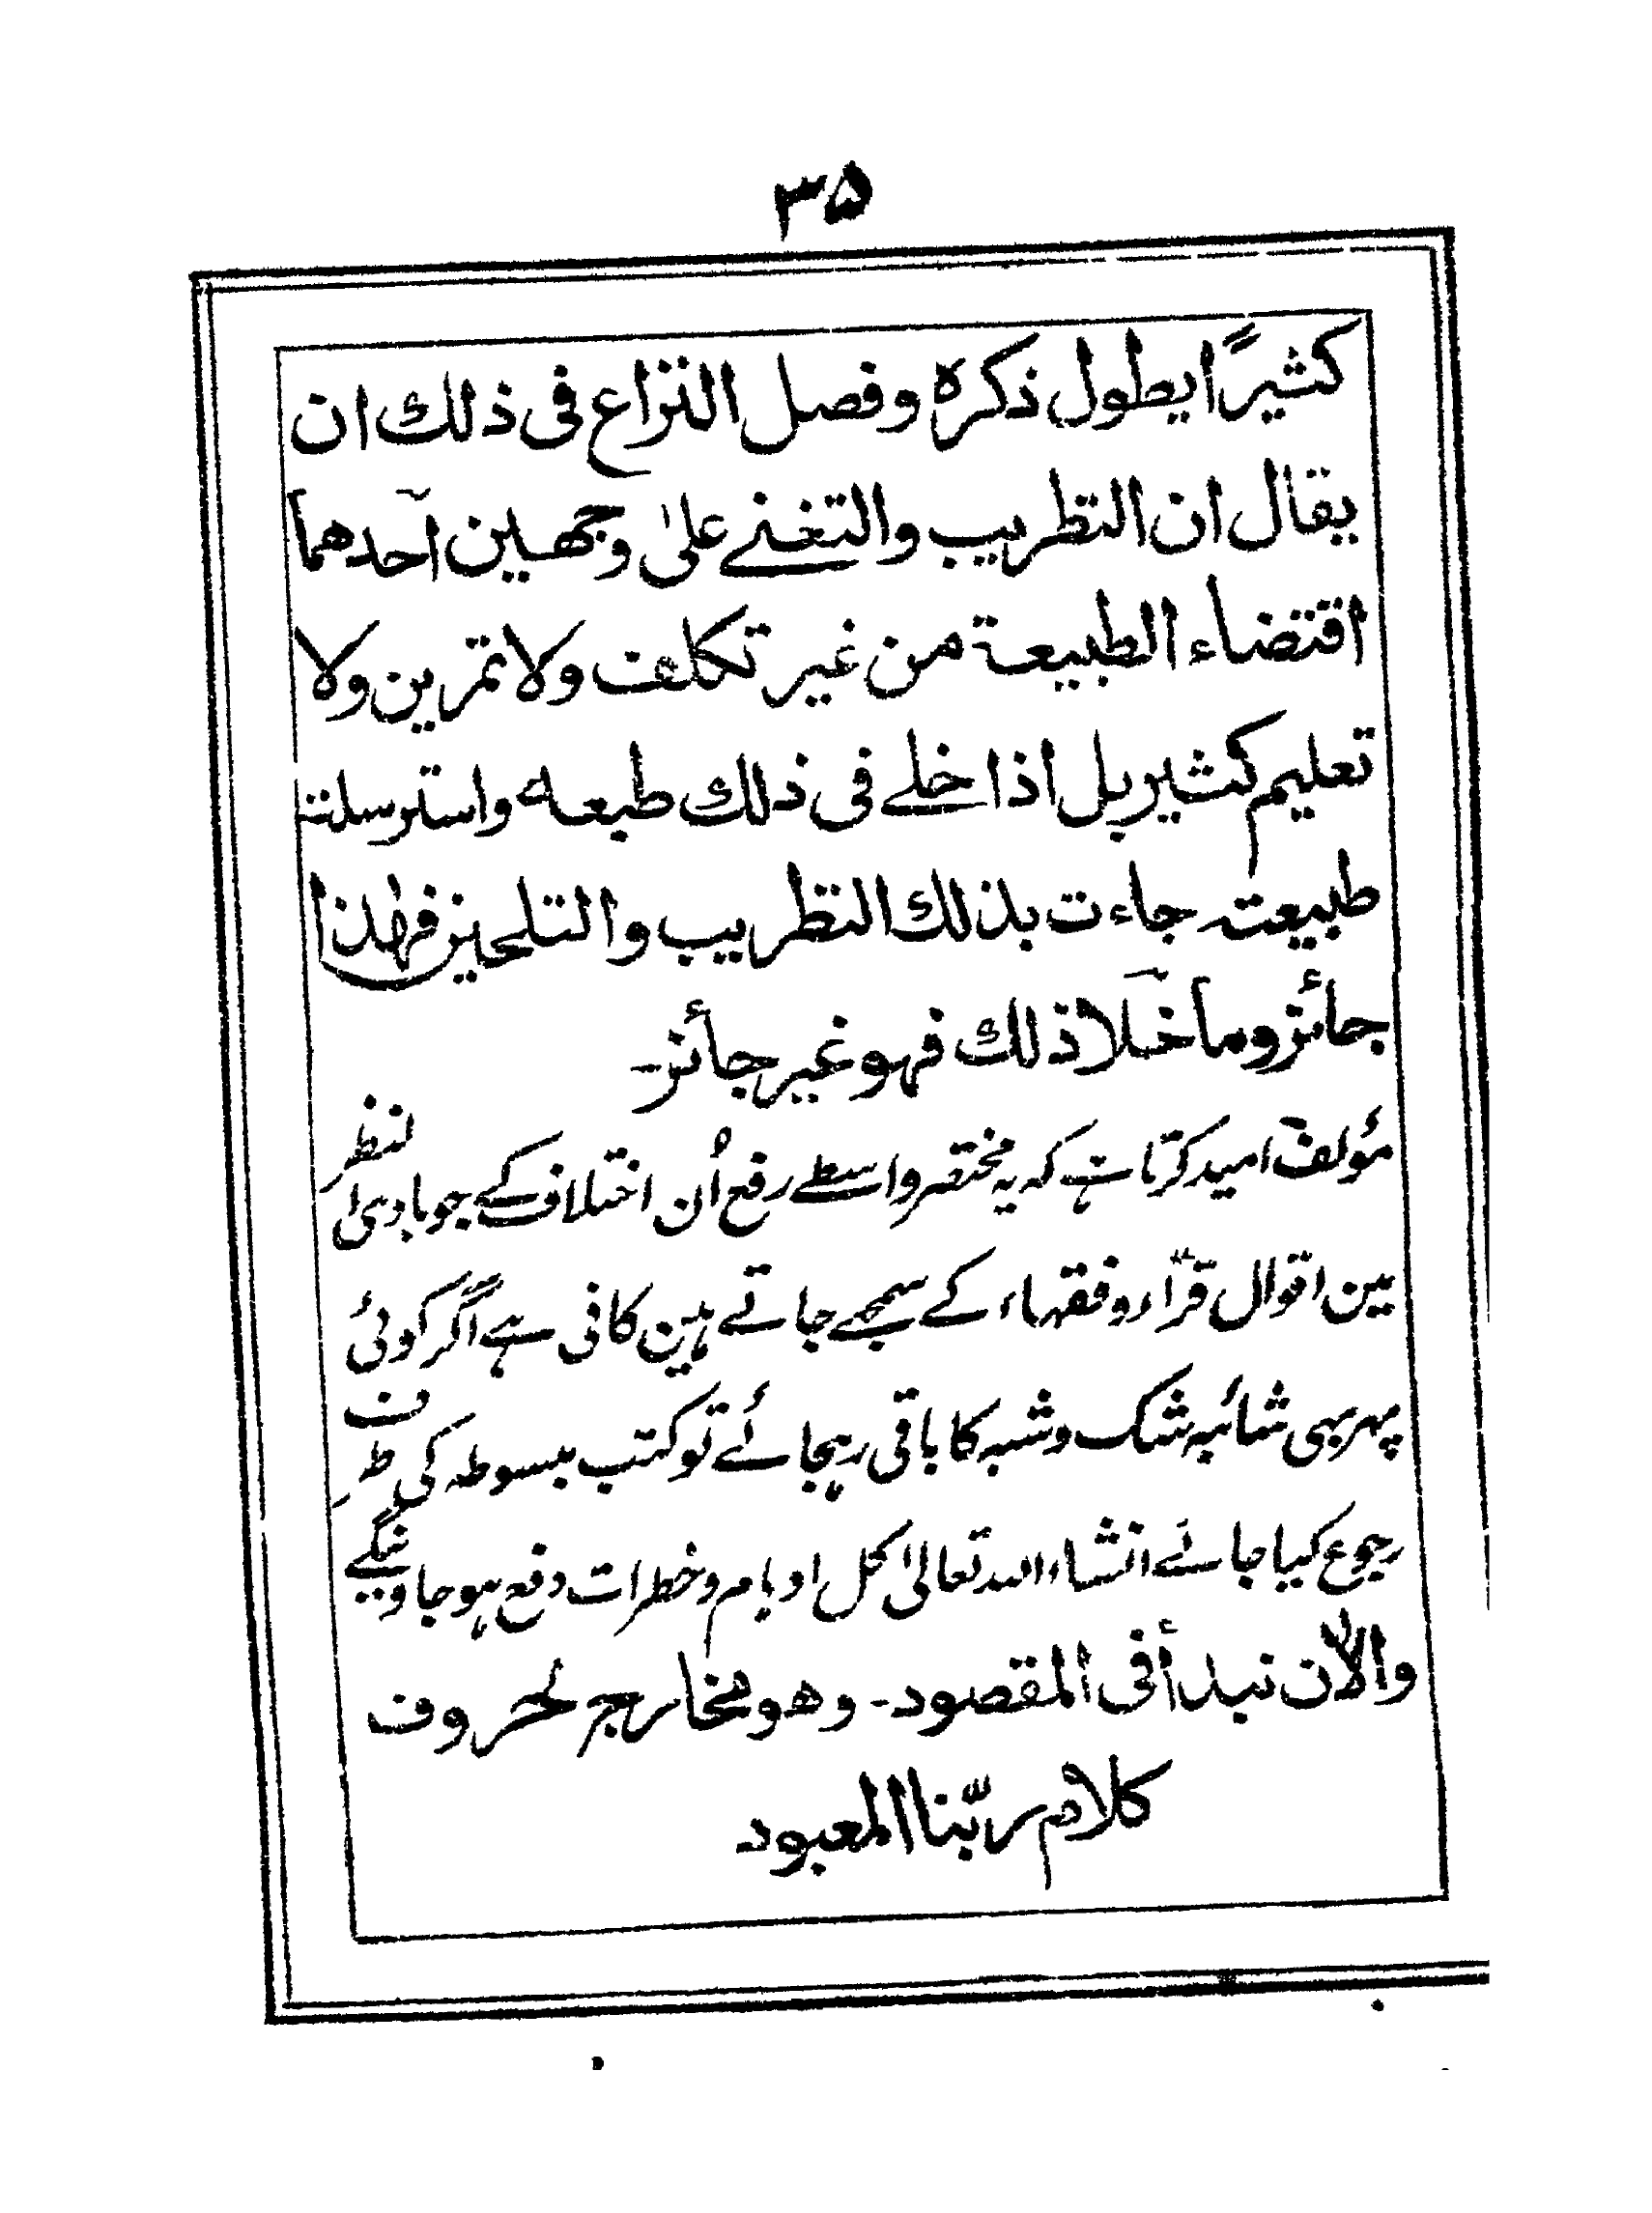 ۳۵
كثيرًا يطول ذكره وفصل النزاع فى ذلك ان
يقال ان التطريب والتغنے علیٰ وجهين احدهما
اقتضاء الطبيعة من غير تكلف ولا تمرين ولا
تعليم كثير بل اذا خلے فى ذلك طبعه واسترسلت
طبيعته جاءت بذلك التطريب والتلحين فهٰذا
جائز وما خلا ذلك فهو غير جائز-
مؤلف امید کرتا ہے کہ یہ مختصر واسطے رفع اُن اختلاف کے جو بادی النظر
مین اقوال قرّاء و فقہاء کے سمجھے جاتے ہین کافی ہے اگر کوئی
پہر بھی شائبہ شک و شبہ کا باقی رہجائے تو کتب مبسوطہ کی طرف
رجوع کیا جائے انشاء اللہ تعالیٰ کل اوہام و خطرات دفع ہو جاوینگے
والآن نبدأ فى المقصود- وهو مخارج لحروف
كلام ربّنا المعبود